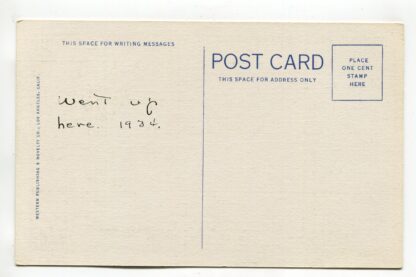 THIS SPACE FOR WRITING MESSAGES
POST CARD
THIS SPACE FOR ADDRESS ONLY
PLACE
ONE CENT
STAMP
HERE
Went up
here. 1934.
WESTERN PUBLISHING & NOVELTY CO., LOS ANGELES, CALIF.